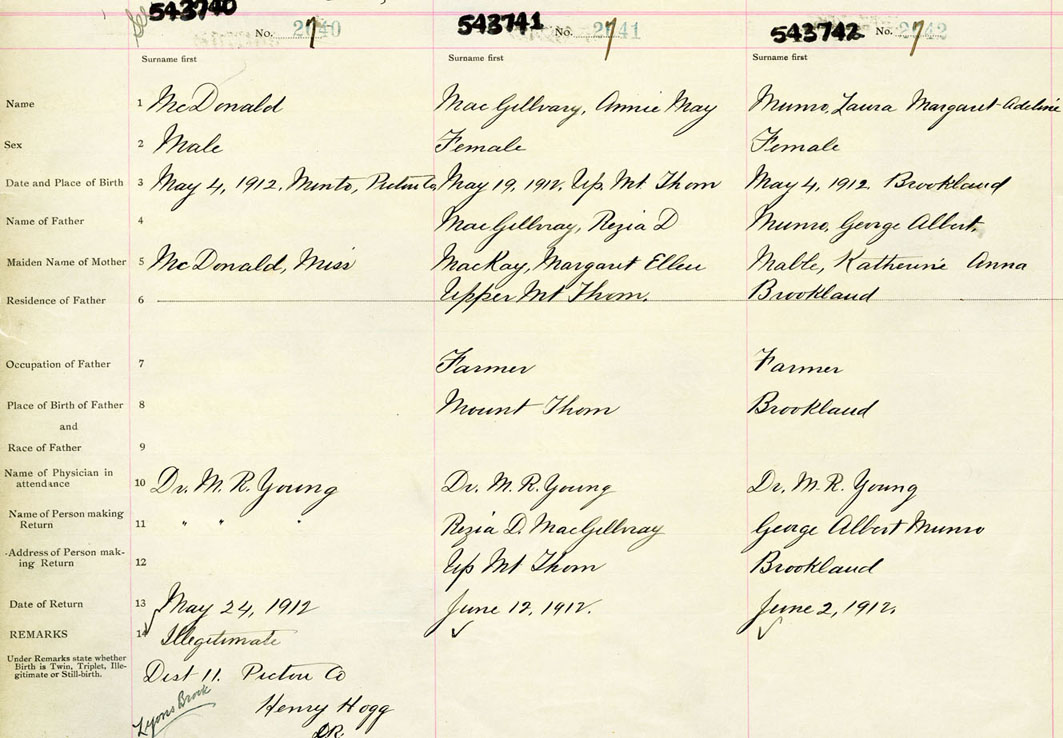 543740 543741 543742
No. 7 2640 No. 7 2641 No. 7 2642
Surname first Surname first Surname first
Name 1 McDonald MacGillvary, Annie May Munro, Laura Margaret Adeline
Sex 2 Male Female Female
Date and Place of Birth 3 May 4, 1912, Minto, Pictou Co May 19, 1912, Up. Mt. Thom May 4, 1912 Brookland
Name of Father 4 MacGillvray, Rezia D Munro, George Albert.
Maiden Name of Mother 5 McDonald, Miss MacKay, Margaret Ellen Mable, Katherine Anna
Residence of Father 6 Upper Mt Thom. Brookland
Occupation of Father 7 Farmer Farmer
Place of Birth of Father 8 Mount Thom Brookland
and
Race of Father 9
Name of Physician in
attendance 10 Dr. M. R. Young Dr. M. R. Young Dr. M. R. Young
Name of Person making
Return 11 " " " Rezia D. MacGillvray George Albert Munro
Address of Person mak-
ing Return 12 Up Mt Thom Brookland
Date of Return 13 May 24, 1912 June 12, 1912. June 2, 1912.
REMARKS 14 Illegitimate
Under Remarks state whether
Birth is Twin, Triplet, Ille-
gitimate or Still-birth.
Dist 11. Pictou Co
Lyons Brook
Henry Hogg
DR